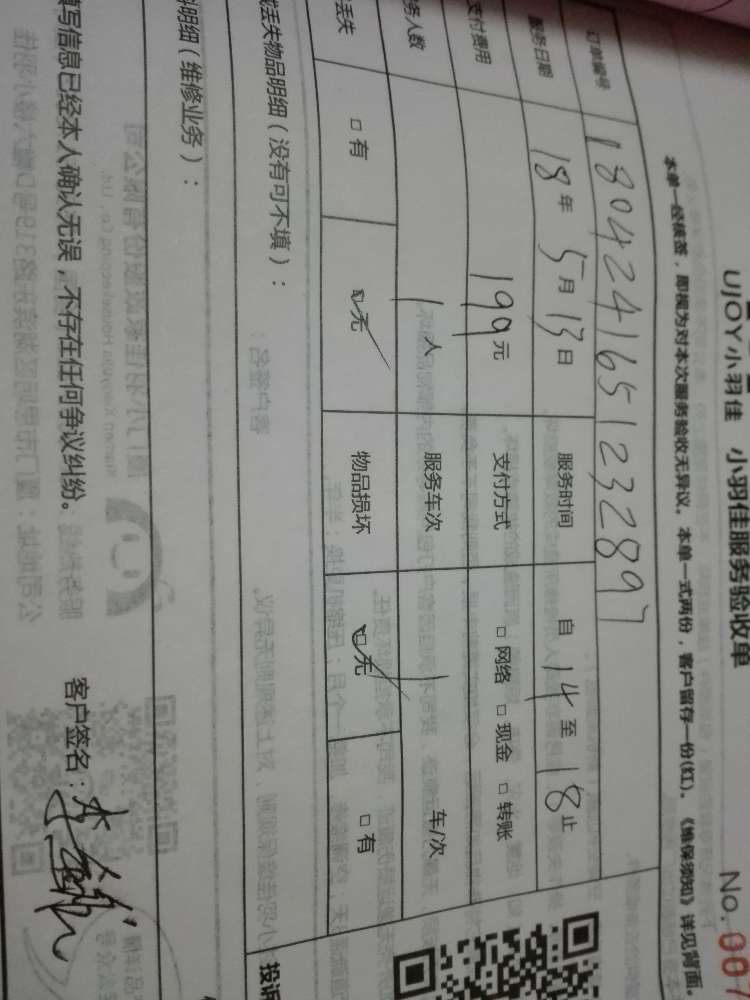 UJOY小羽佳 小羽佳服务验收单 No.007
本单一经核签，即视为对本次服务验收无异议。本单一式两份，客户留存一份(红)。《维保须知》详见背面。
订单编号 1804241651232897
服务日期 18年5月13日 服务时间 自14至18止
支付费用 199元 支付方式 □网络 □现金 □转账
务人数 1人 服务车次 1 车/次
丢失 □有 □无 物品损坏 □无 □有
丢失物品明细（没有可不填）：
投诉
明细（维修业务）：
填写信息已经本人确认无误，不存在任何争议纠纷。 客户签名：李